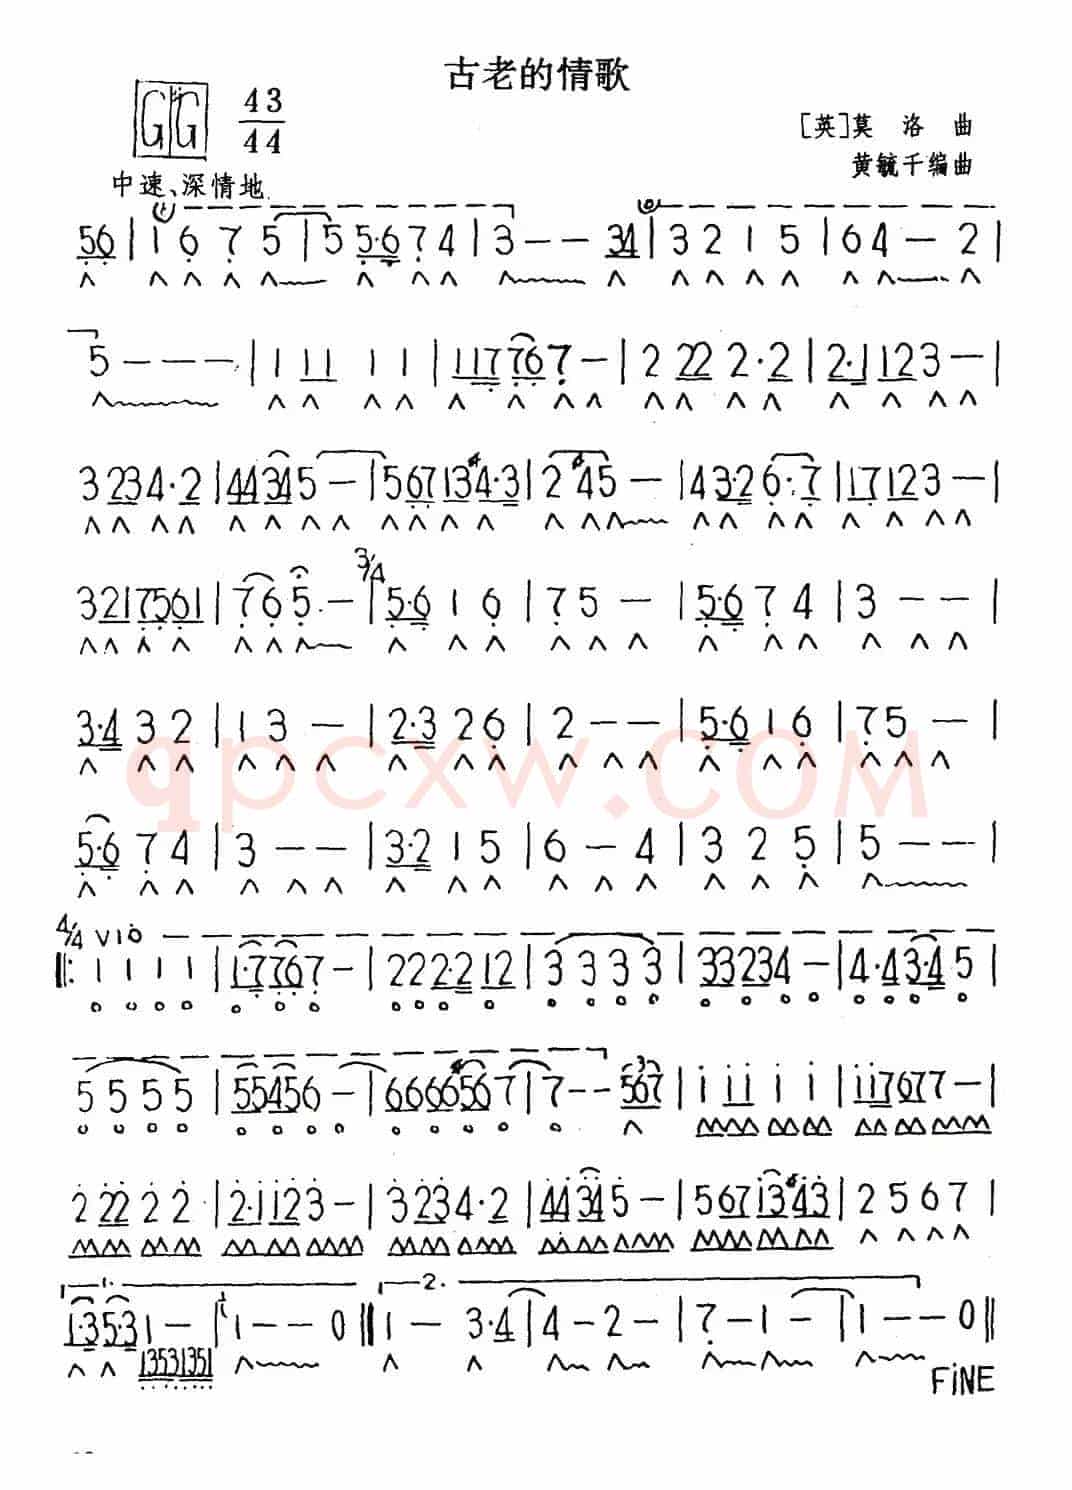 古老的情歌
GG 43
44
[英]莫 洛 曲
黄毓千编曲
中速、深情地
56 | 1 6 7 5 | 5 5·6 7 4 | 3 - - 34 | 3 2 1 5 | 6 4 - 2 |
5 - - - | 1 11 1 1 | 117 76 7 - | 2 22 2·2 | 2·1 123 - |
3 234·2 | 44345 - | 567 134·3 | 2 45 - | 43·2 6·7 | 17123 - |
3217561 | 7 6 5 - | 3/4 5·6 1 6 | 7 5 - | 5·6 7 4 | 3 - - |
3·4 3 2 | 1 3 - | 2·3 2 6 | 2 - - | 5·6 1 6 | 7 5 - |
qpcxw.COM
5·6 7 4 | 3 - - | 3·2 1 5 | 6 - 4 | 3 2 5 | 5 - - |
4/4 VIO
‖: 1 1 1 1 | 1·7767 - | 222·212 | 3 3 3 3 | 33234 - | 4·43·4 5 |
5 5 5 5 | 55456 - | 6666567 | 7 - - 567 | 1 11 1 1 | 117677 - |
3
2 22 2 2 | 2·1123 - | 3234·2 | 44345 - | 5671343 | 2 5 6 7 |
1. 2.
1·35·31 - | 1 - - 0 ‖ 1 - 3·4 | 4 - 2 - | 7 - 1 - | 1 - - 0 ‖
13531351
FINE